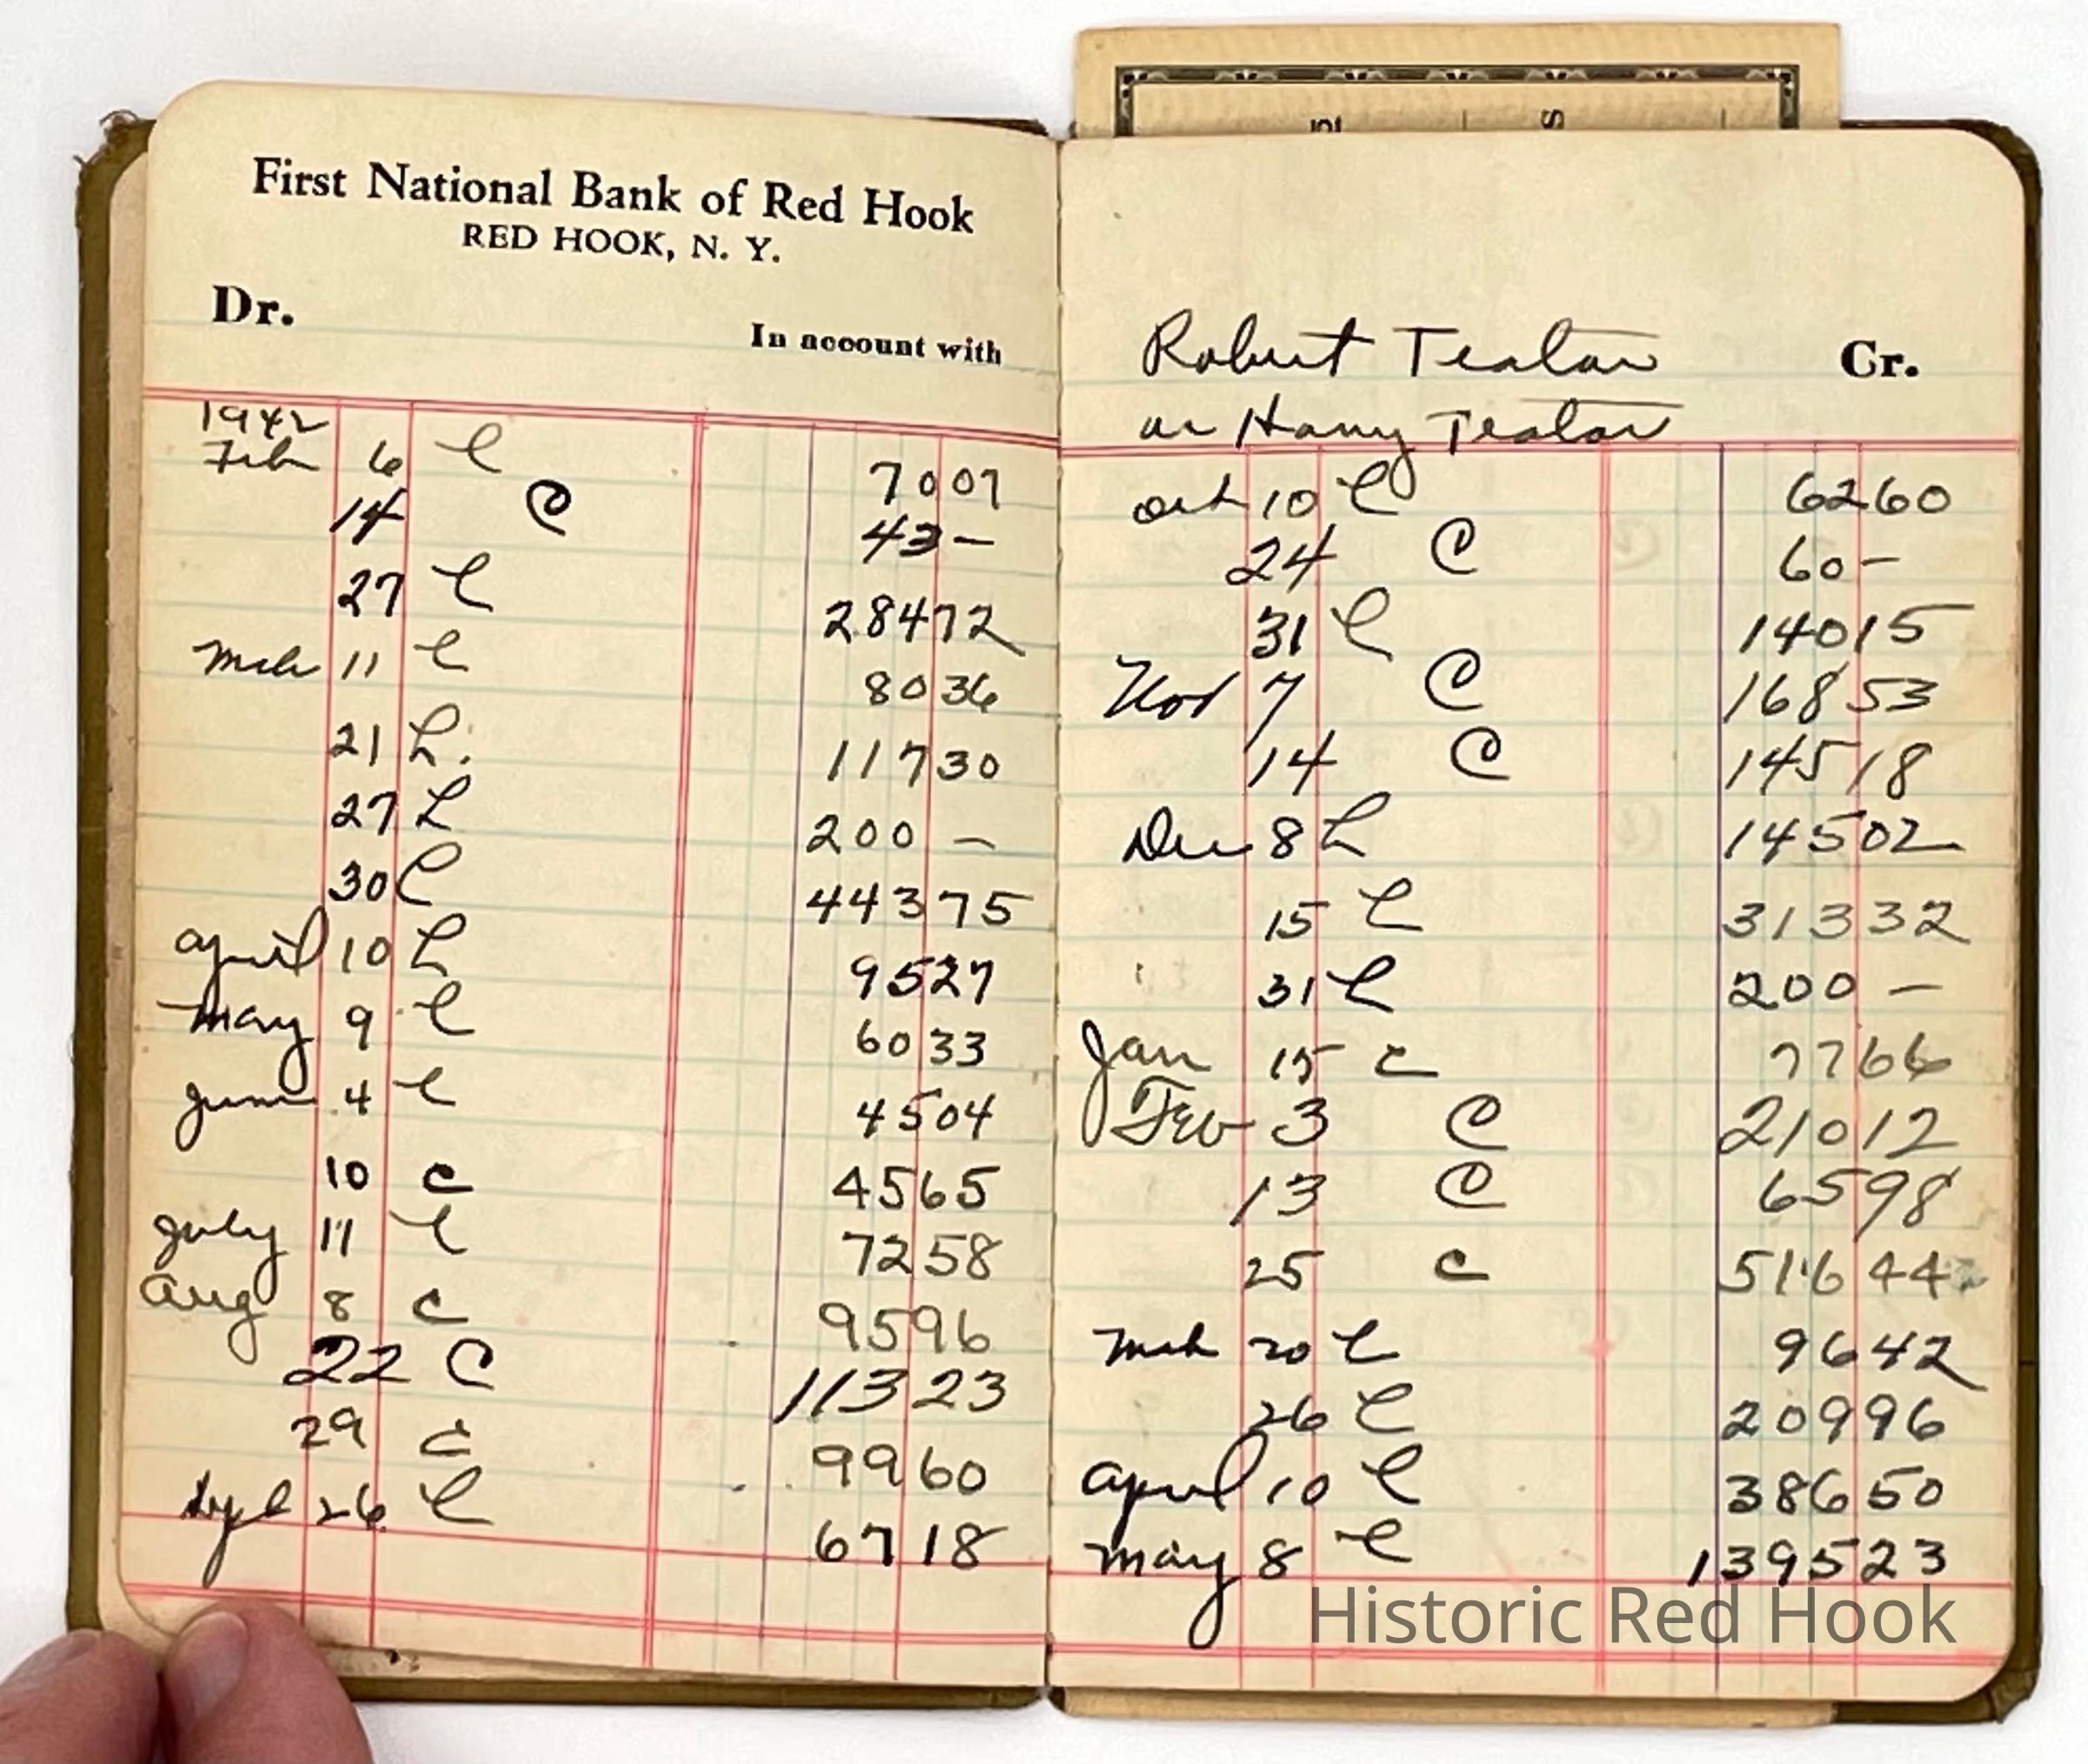 First National Bank of Red Hook
RED HOOK, N. Y.
Dr.
In account with
1942
Feb 6 C 70 07
14 C 43 —
27 C 284 72
Mch 11 C 80 36
21 L. 117 30
27 L 200 —
30 C 443 75
April 10 L 95 27
May 9 C 60 33
June 4 C 45 04
10 C 45 65
July 11 C 72 58
Aug 8 C 95 96
22 C 113 23
29 C 99 60
Sept 26 C 67 18
S
Robert Teator Cr.
or Harry Teator
Oct 10 C 62 60
24 C 60 —
31 C 140 15
Nov 7 C 168 53
14 C 145 18
Dec 8 L 145 02
15 C 313 32
31 C 200 —
Jan 15 C 77 66
Feb 3 C 210 12
13 C 65 98
25 C 516 44
Mch 20 C 96 42
26 C 209 96
April 10 C 386 50
May 8 C 1395 23
Historic Red Hook